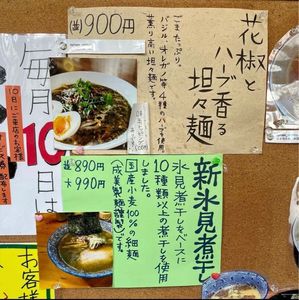 花椒と
ハーブ香る
坦々麺
ごまたっぷり。
バジル・オレガノ等4種のハーブを使用
薫り高い坦々麺です。
(並)900円
毎月
10
日は
10日にご来店のお客様
新氷見煮干し
氷見煮干しをベースに
10種類以上の煮干しを使用
しました。
国産小麦100%の細麺
(成美製麺謹製)です。
並890円
大990円
お客様